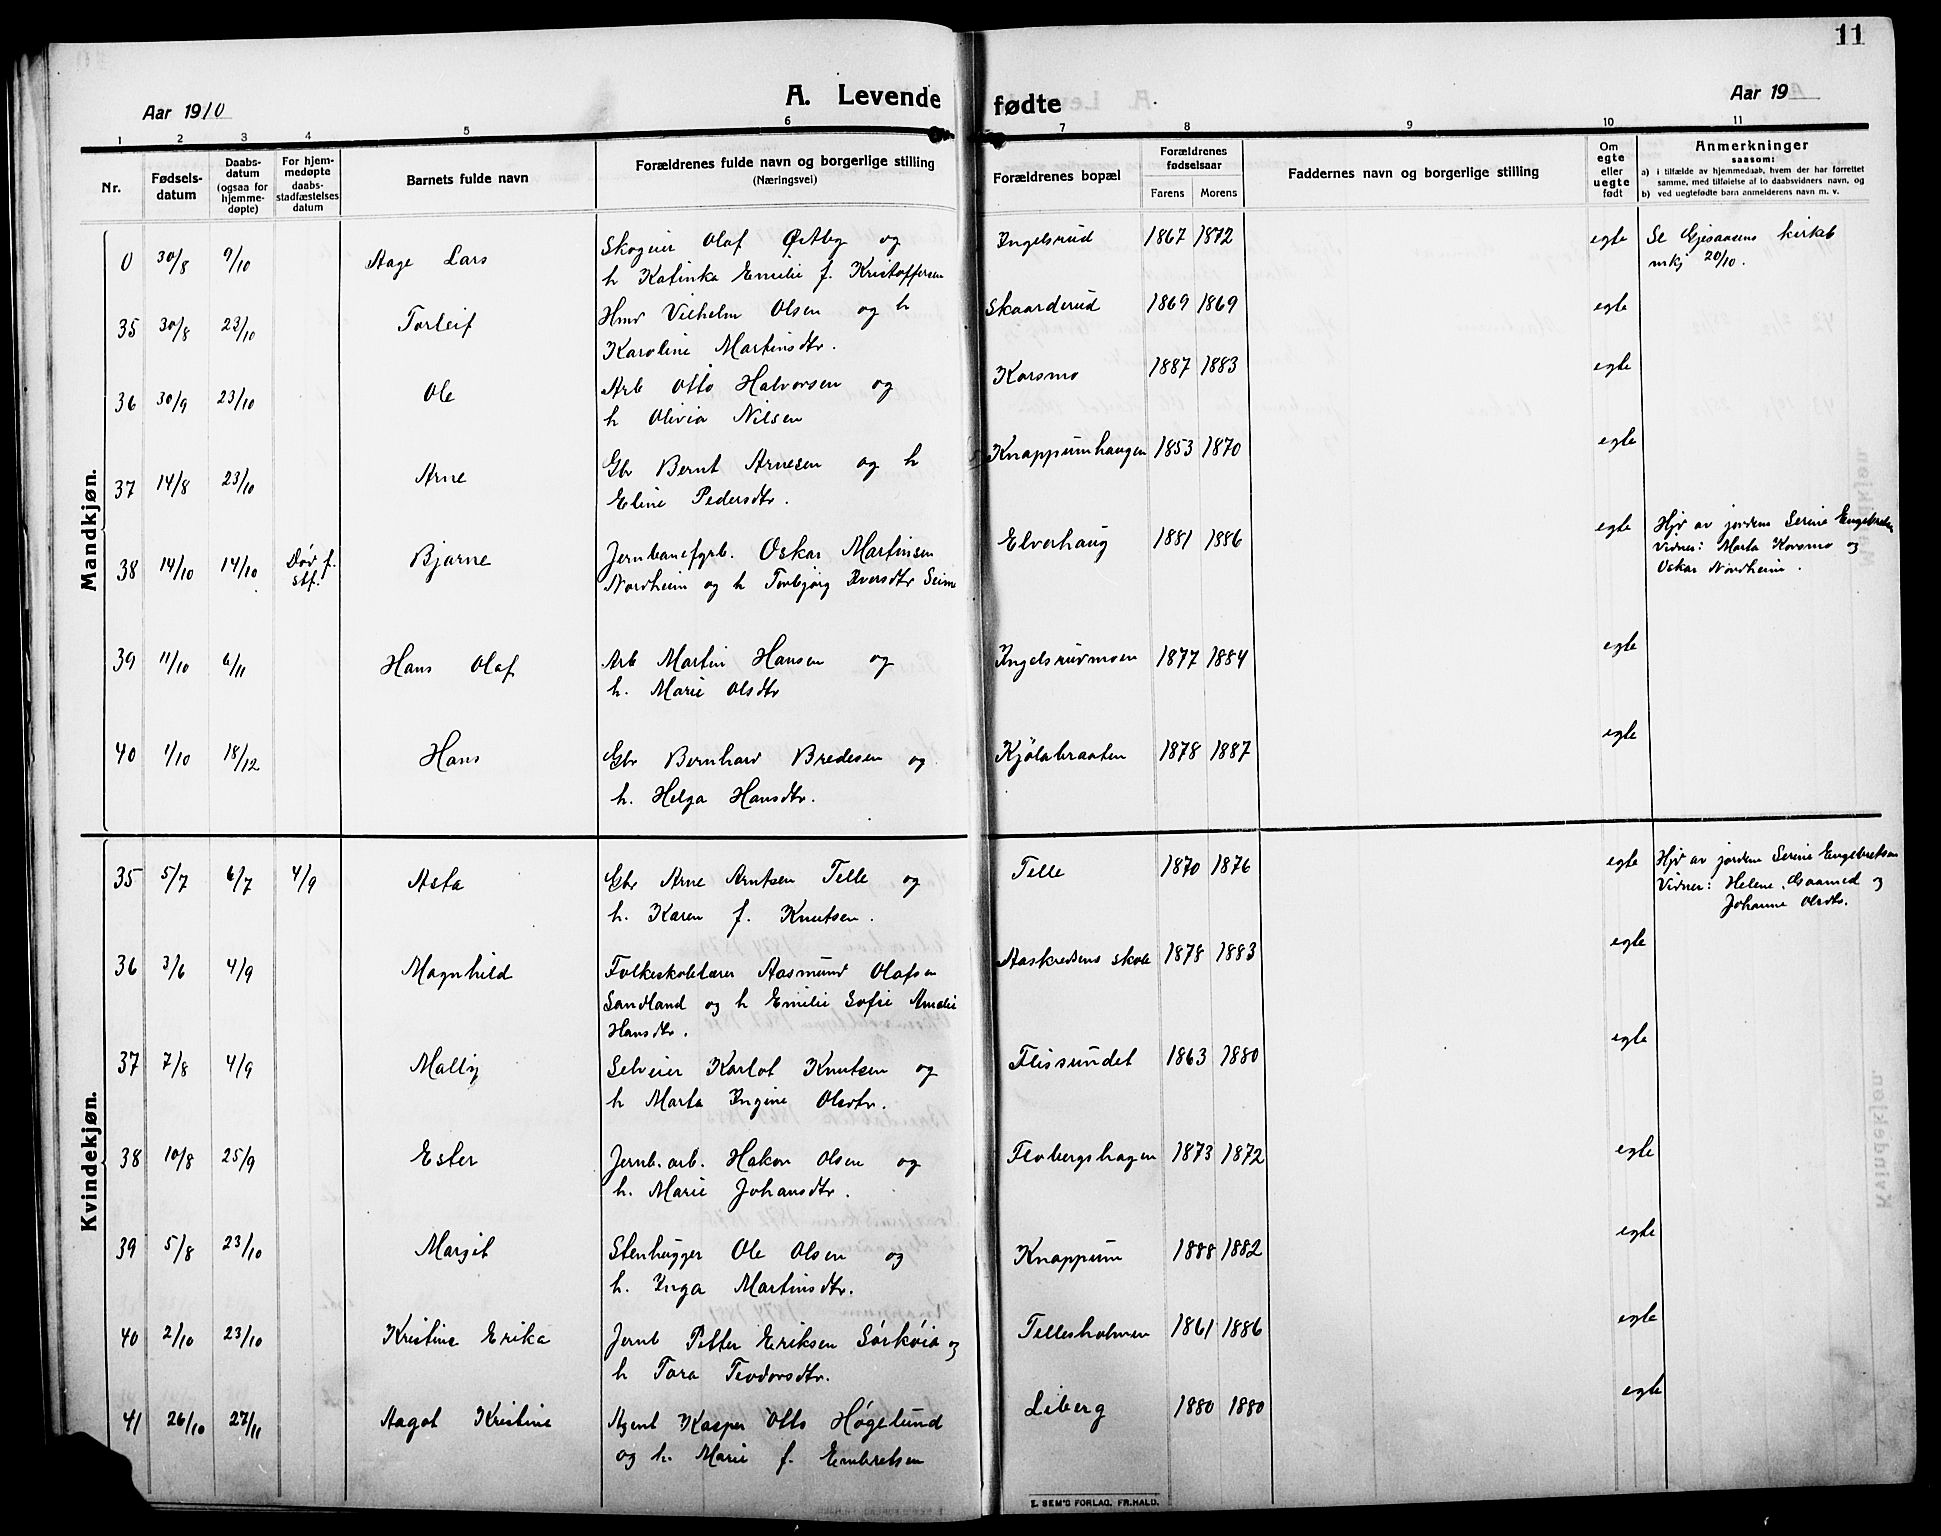 11
Aar 1910
A. Levende fødte
Aar 19
1 2 3 4 5 6 7 8 9 10 11
Nr.
Fødsels-
datum
Daabs-
datum
(ogsaa for
hjemme-
døpte)
For hjem-
medøpte
daabs-
stadfæstelses
datum
Barnets fulde navn
Forældrenes fulde navn og borgerlige stilling
(Næringsvei)
Forældrenes bopæl
Forældrenes
fødselsaar
Farens Morens
Faddernes navn og borgerlige stilling
Om
egte
eller
uegte
født
Anmerkninger
saasom:
a) i tilfælde av hjemmedaab, hvem der har forrettet
samme, med tilføielse af to daabsvidners navn, og
b) ved uegtefødte børn anmelderens navn m. v.
Mandkjøn.
0 30/8 9/10 Aage Lars Skogeier Olaf Østby og Ingelsrud 1867 1872 egte Se Gjesaasens kirkeb
h Katinka Emilie f. Kristoffersen mkj 20/10.
35 30/8 23/10 Torleif Hmd Vilhelm Olsen og h Skaarderud 1869 1869 egte
Karoline Martinsdtr.
36 30/9 23/10 Ole Arb Otto Halvorsen og Korsmo 1887 1883 egte
h Olivia Nilsen
37 14/8 23/10 Arne Gbr Bernt Arnesen og h Knappumhaugen 1853 1870 egte
Eline Pedersdtr.
38 14/10 14/10 Død f. Bjarne Jernbanefgrb. Oskar Martinsen Elverhaug 1881 1886 egte Hjd av jordem Serine Engebretsen
stf. Nordheim og h Torbjørg Iversdtr Seim Vidner: Marta Korsmo og
Oskar Nordheim.
39 11/10 6/11 Hans Olaf Arb Martin Hansen og Ingelsrudmoen 1877 1884 egte
h. Marie Olsdtr
40 1/10 18/12 Hans Gbr Bernhard Bredesen og Kjølabraaten 1878 1887 egte
h. Helga Hansdtr.
Kvindekjøn.
35 5/7 6/7 4/9 Asta Gbr Arne Arntsen Telle og Telle 1870 1876 egte Hjd av jordem Serine Engebretsen
h. Karen f. Knutsen. Vidner: Helene og
Johanne Olsdtr.
36 3/6 4/9 Magnhild Folkeskolelærer Aasmund Olafsen Aaskredsens skole 1878 1883 egte
Sandland og h Emilie Sofie Amalie
Hansdtr.
37 7/8 4/9 Mally Selveier Karlot Knutsen og Flissundet 1863 1880 egte
h Marta Ingine Olsdtr.
38 10/8 25/9 Ester Jernb. arb. Hakon Olsen og Flobergshagen 1873 1872 egte
h. Marie Johansdtr.
39 5/8 23/10 Margit Stenhugger Ole Olsen og Knappum 1888 1882 egte
h. Inga Martinsdtr.
40 2/10 23/10 Kristine Erika Jernb Petter Eriksen Sørkøia og Tellesholmen 1861 1886 egte
h Tora Teodorsdtr.
41 26/10 27/11 Aagot Kristine Agent Kasper Otto Høgelund Liberg 1880 1880 egte
og h. Marie f. Embretsen
E. SEM'S FORLAG, FR.HALD.